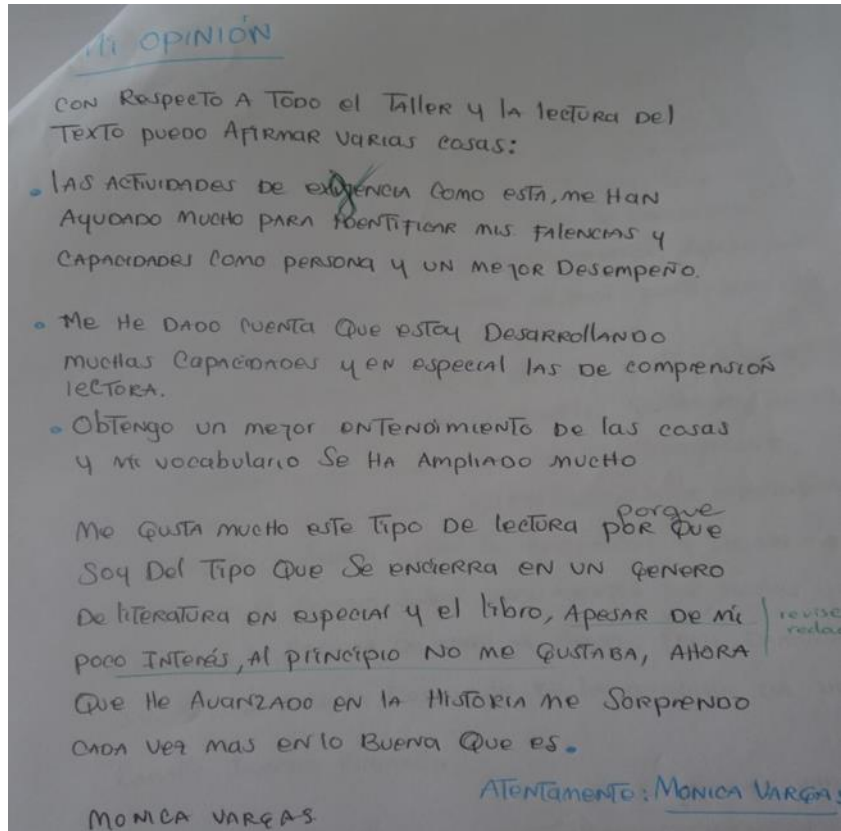 Mi OPINIÓN
CON Respecto A Todo el Taller y la lectura Del
Texto puedo Afirmar varias cosas:
• LAS ACTIVIDADES DE exigencia Como esta, me HaN
AYUDADO MUCHO PARA IDENTIFICAR mis FALENCIAS y
CAPACIDADES COMO PERSONA y UN Mejor Desempeño.
• Me He DADO CUENTA Que estoy DESARROllANDO
mucHas CapaciDADes y eN especial lAS De comprensioñ
lecTORA.
• ObTengo un mejor eNTeNDimienTo De las cosas
y Mi vocabulario Se HA AmpliADO mucHo
porque
Me GUSTA mucHo esTe Tipo De lecTURA poR Que
Soy Del Tipo Que Se encierra EN UN GENERO
De liTeRATURA eN especiAl y el libro, APESAR De Mi revise
poco InTeRés, Al principio No me GUSTABA, AHORA
Que He AvaNZADo eN lA HisToRiA me SoRpReNDo
CADA vez mas eN lo BueNa Que es.
ATeNTameNTe: MoNicA VARGAS
MONICA VARGAS.